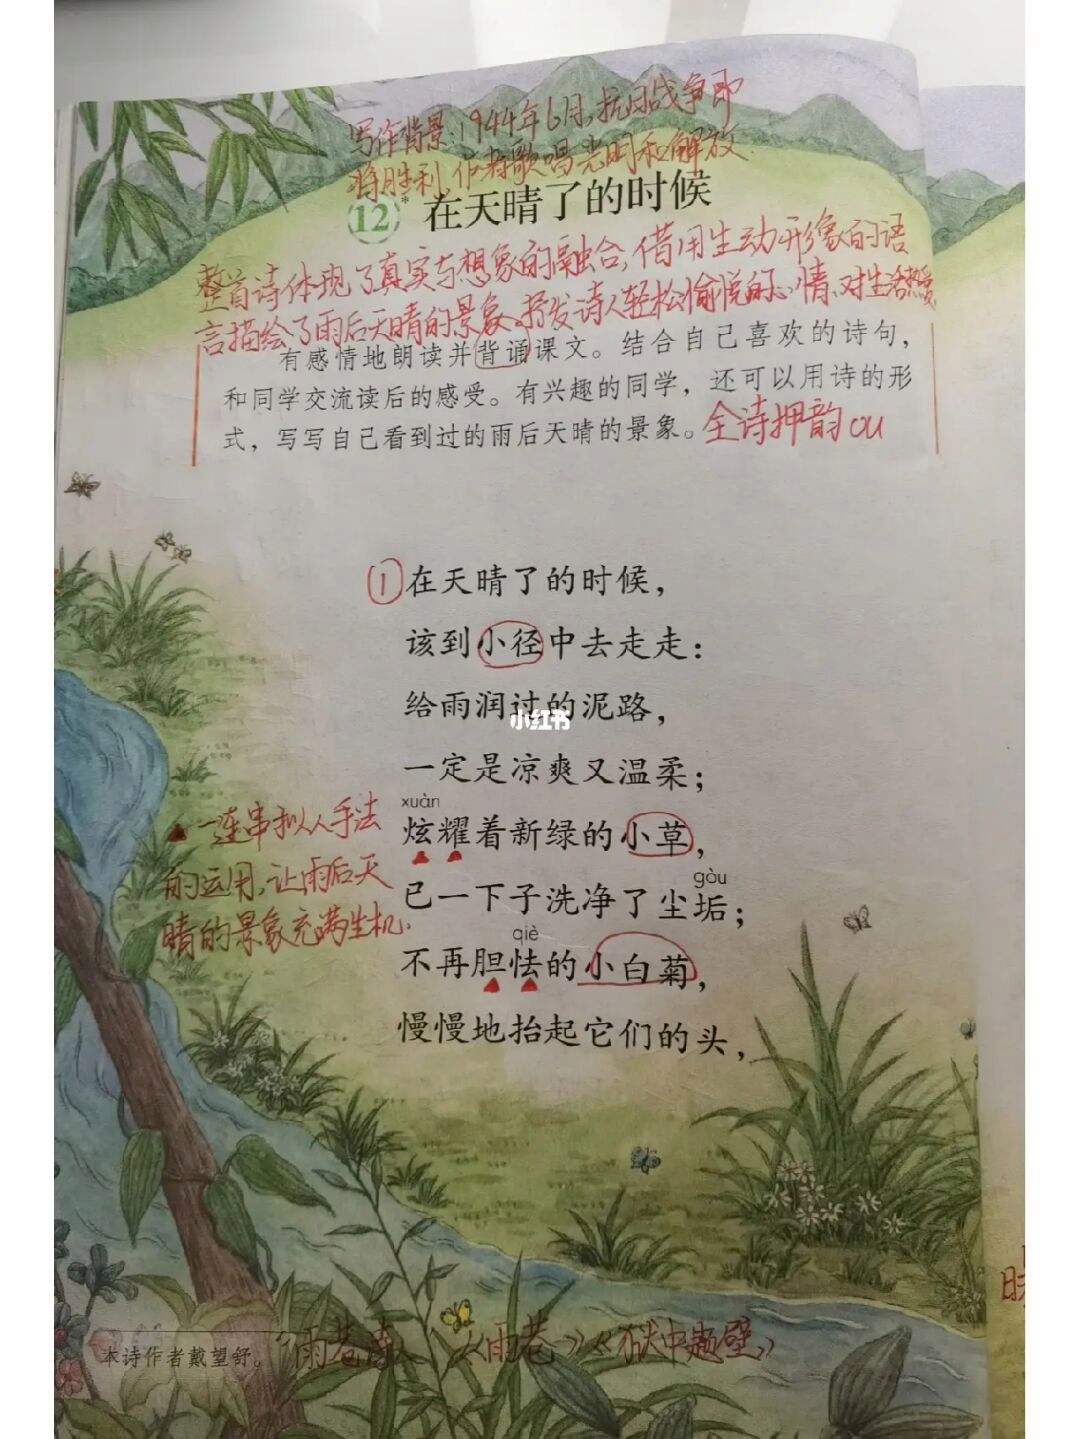 写作背景:1944年6月,抗日战争即
将胜利,作者歌唱光明和解放.
12* 在天晴了的时候
整首诗体现了真实与想象的融合,借用生动形象的语
言描绘了雨后天晴的景象、抒发诗人轻松愉悦的心情、对生活热爱
有感情地朗读并背诵课文。结合自己喜欢的诗句,
和同学交流读后的感受。有兴趣的同学,还可以用诗的形
式,写写自己看到过的雨后天晴的景象。全诗押韵ou
①在天晴了的时候,
该到小径中去走走:
给雨润过的泥路,
小红书
一定是凉爽又温柔;
xuàn
炫耀着新绿的小草,
gòu
已一下子洗净了尘垢;
qiè
不再胆怯的小白菊,
慢慢地抬起它们的头,
一连串拟人手法
的运用,让雨后天
晴的景象充满生机.
本诗作者戴望舒。
《雨巷》《狱中题壁》